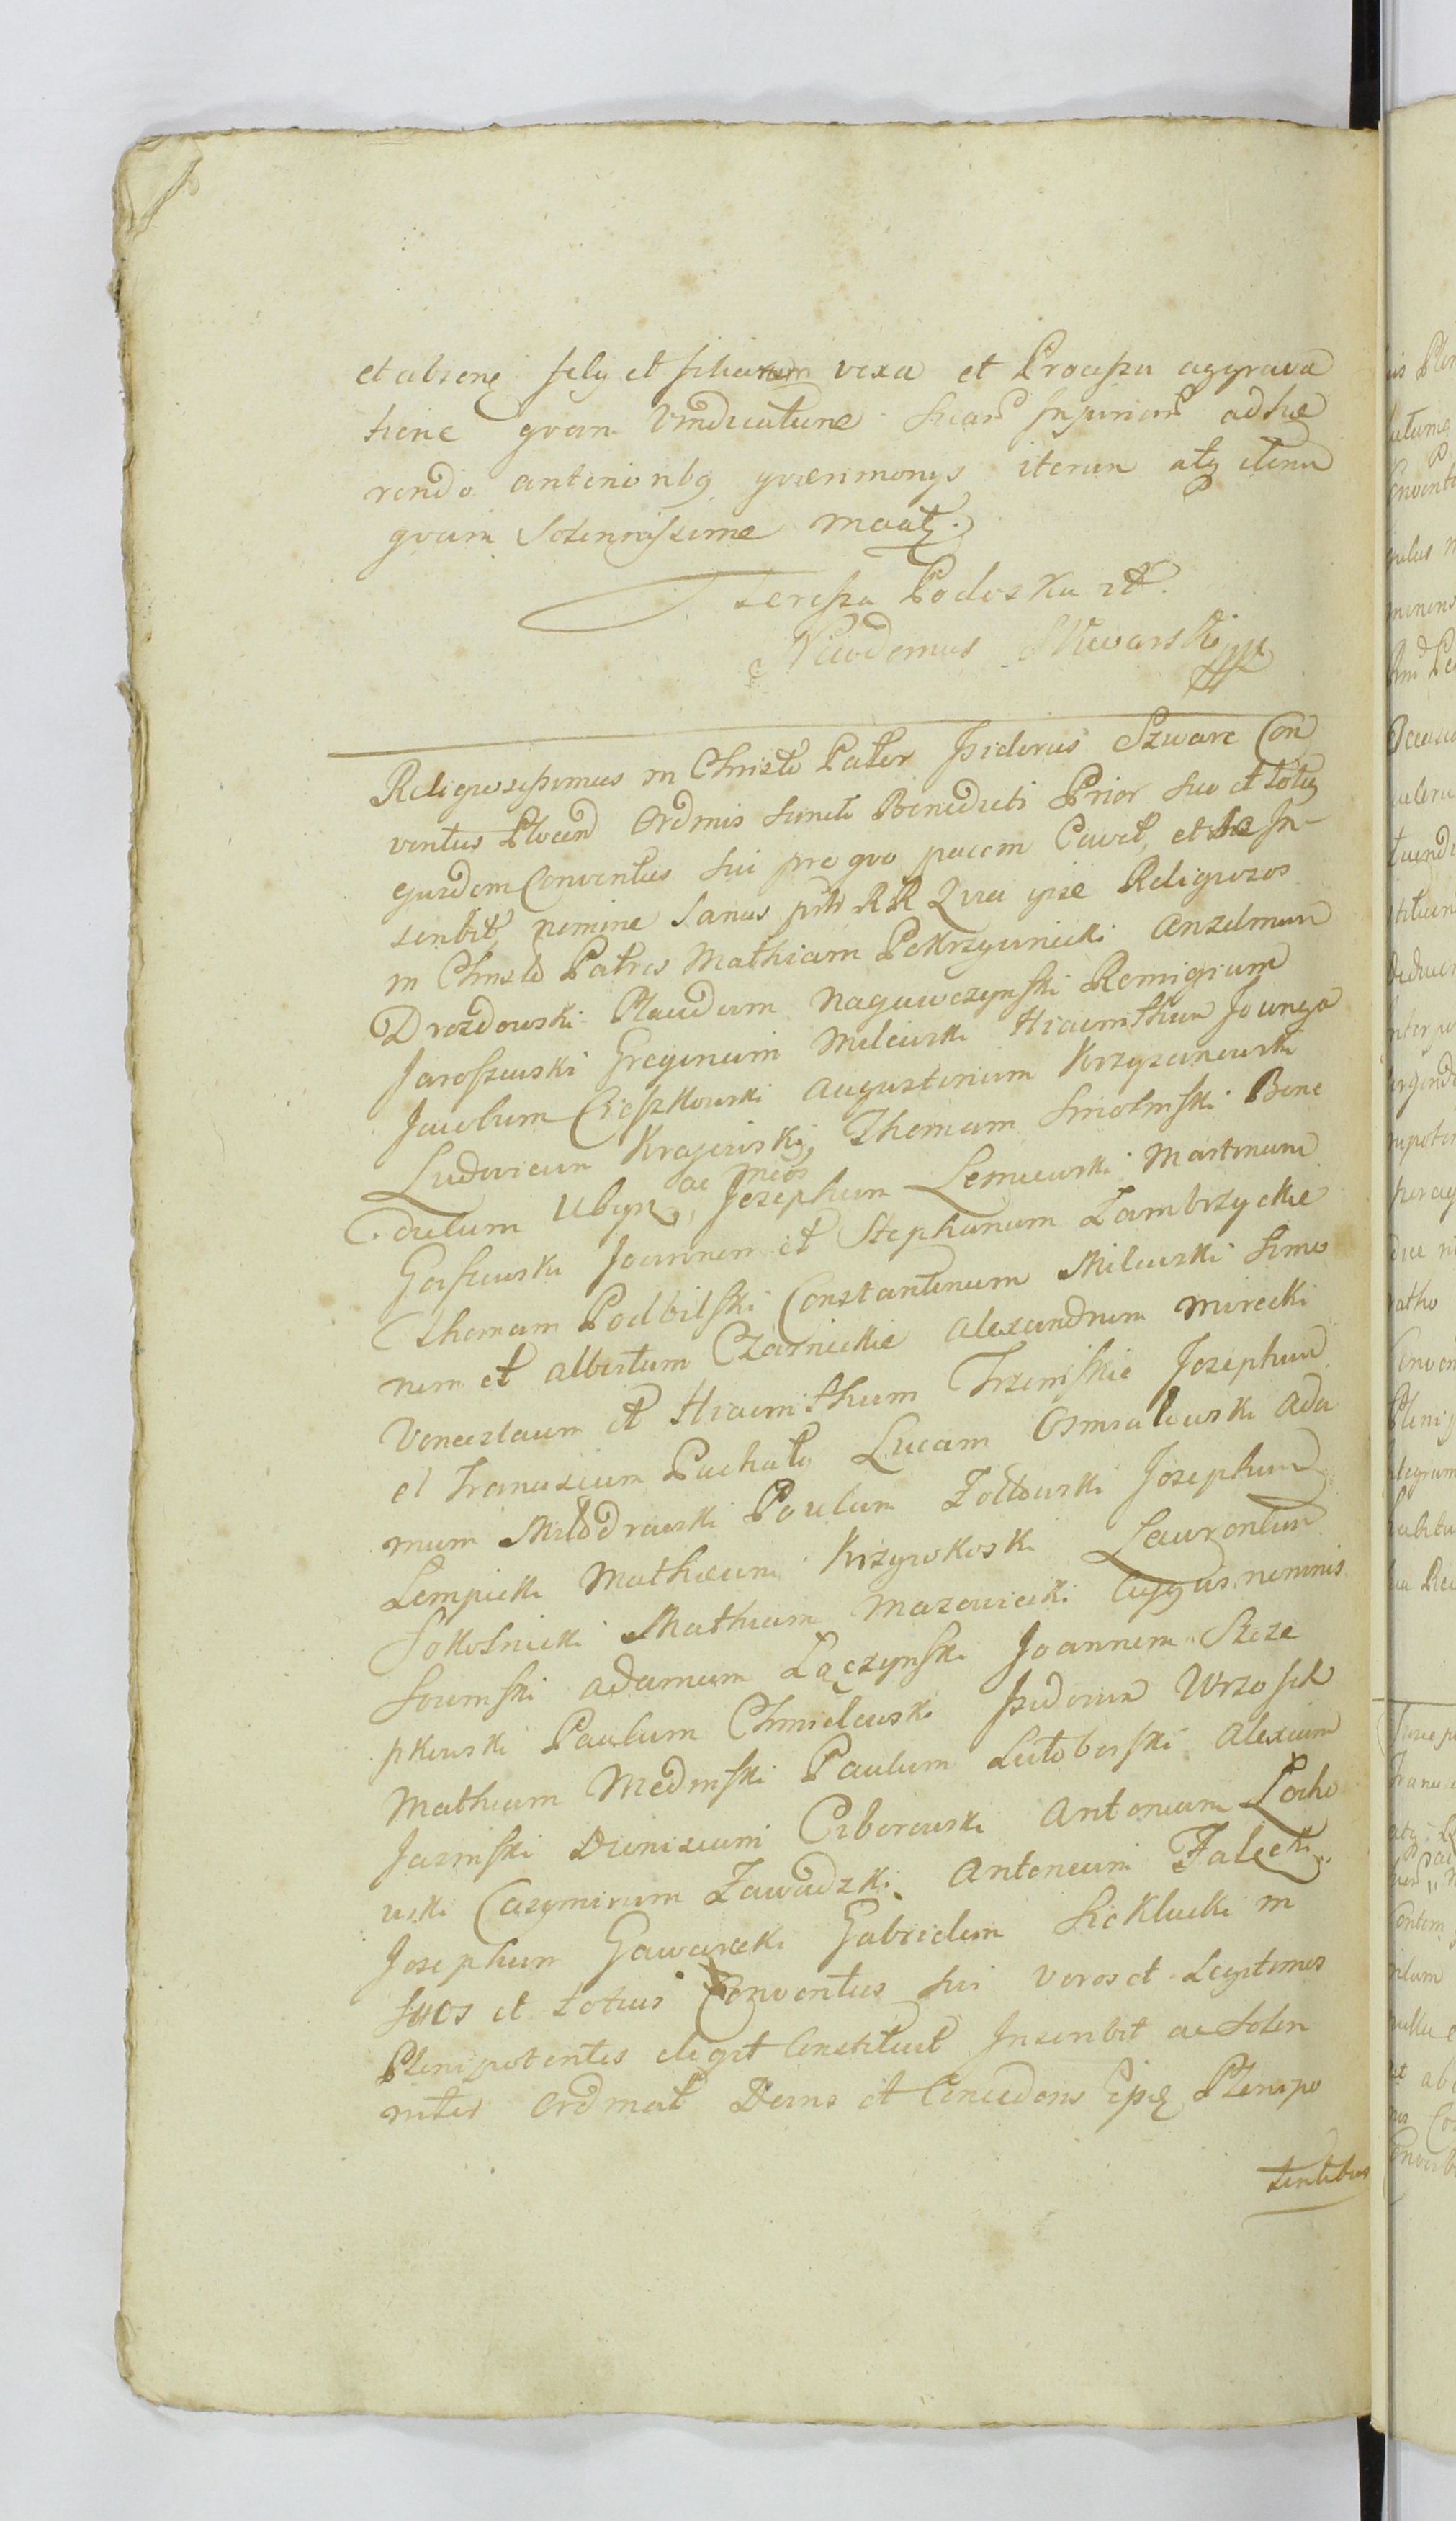 et absene fily et filiarum vexa et Processu aggrava
tione quam Vindicatune suar Injuriar adhe
rendo anterioribq querimonys iterum atq iterum
quam Solennissime maatq.
Teressa Podoska rt
Nicodemus Skwarski mp
Religiosissimus in Christo Pater Isidorus Szwarc Con
ventus Plocen Ordinis Sancti Benedicti Prior suo et totiq
ejusdem Conventus sui pro quo pacem Cavet, et se In-
scribit nomine Sanus RR Quia ipse Religiosos
in Christo Patres Mathiam Pokrzywnicki Anzelmum
Drozdowski Placidum Naguwczynski Remigium
Jaroszewski Gregorium Milewski Hiacinthum Jounga
Jacobum Cieszkowski Augustinum Krzyzanowski
Ludovicum Krajewski, Thomam Smolinski Bene
dictum Ubysz, ac Mcos Josephum Lemiewski Martinum
Gosiewski Joannem et Stephanum Zambrzyckie
Thomam Podbilski Constantinum Milewski Simo
nem et Albertum Czarnieckie Alexandrum Mirecki
Venceslaum et Hiacinthum Trzcinskie Josephum
et Franciscum Puchaly Lucam Osmialowski Ada
mum Milodrowski Paulum Zoltowski Josephum
Lempicki Mathaeum Krzywkoski Laurentium
Sokolnicki Mathiam Mazowiecki Cujusnominis
Soumski Adamum Lączynski Joannem Szcze
pkowski Paulum Chmielewski Isidorum Wrzosek
Mathiam Medinski Paulum Lutoborski Alexium
Jasinski Dionisium Ciborowski Antonium Locho
wski Casimirum Zawadzki Antonium Falecki
Josephum Gawarecki Gabrielem Sieklucki in
suos et totius Conventus sui veros et Legitimos
Plenipotentes elegit Constituit Inscribit ac Solen
niter Ordinat Dans et Concedens Eisdę Plenipo
tentibus